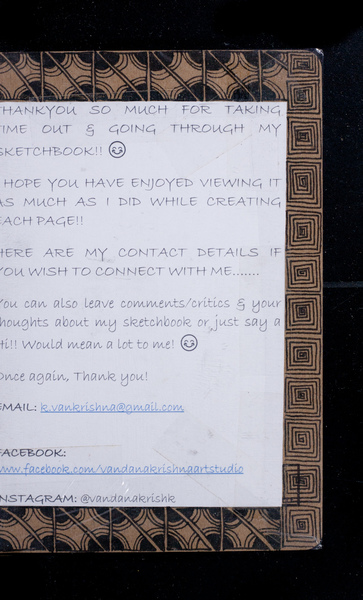 THANKYOU SO MUCH FOR TAKING
TIME OUT & GOING THROUGH MY
SKETCHBOOK!! ☺
I HOPE YOU HAVE ENJOYED VIEWING IT
AS MUCH AS I DID WHILE CREATING
EACH PAGE!!
HERE ARE MY CONTACT DETAILS IF
YOU WISH TO CONNECT WITH ME.......
You can also leave comments/critics & your
thoughts about my sketchbook or just say a
Hi!! Would mean a lot to me! ☺
Once again, Thank you!
EMAIL: k.vankrishna@gmail.com
FACEBOOK:
www.facebook.com/vandanakrishnaartstudio
INSTAGRAM: @vandanakrishk